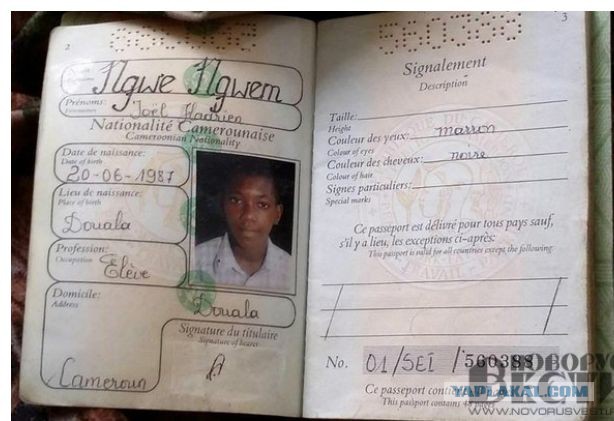 2
Ngwe Ngwem
Prénoms:
Joël Hadrien
Nationalité Camerounaise
Cameroonian Nationality
Date de naissance:
Date of birth
20-06-1987
Lieu de naissance:
Place of birth
Douala
Profession:
Occupation
Elève
Domicile:
Address
Douala
Signature du titulaire
Signature of bearer
Cameroun
3
560388
Signalement
Description
Taille:
Height
Couleur des yeux: marron
Colour of eyes
Couleur des cheveux: noire
Colour of hair
Signes particuliers:
Special marks
Ce passeport est délivré pour tous pays sauf,
s'il y a lieu, les exceptions ci-après:
This passport is valid for all countries except the following:
TRAVAIL
No. 01/SEI /560388
Ce passeport contient
This passport contains 48 pages
YAPLAKAL.COM
WWW.NOVORUSVESTI